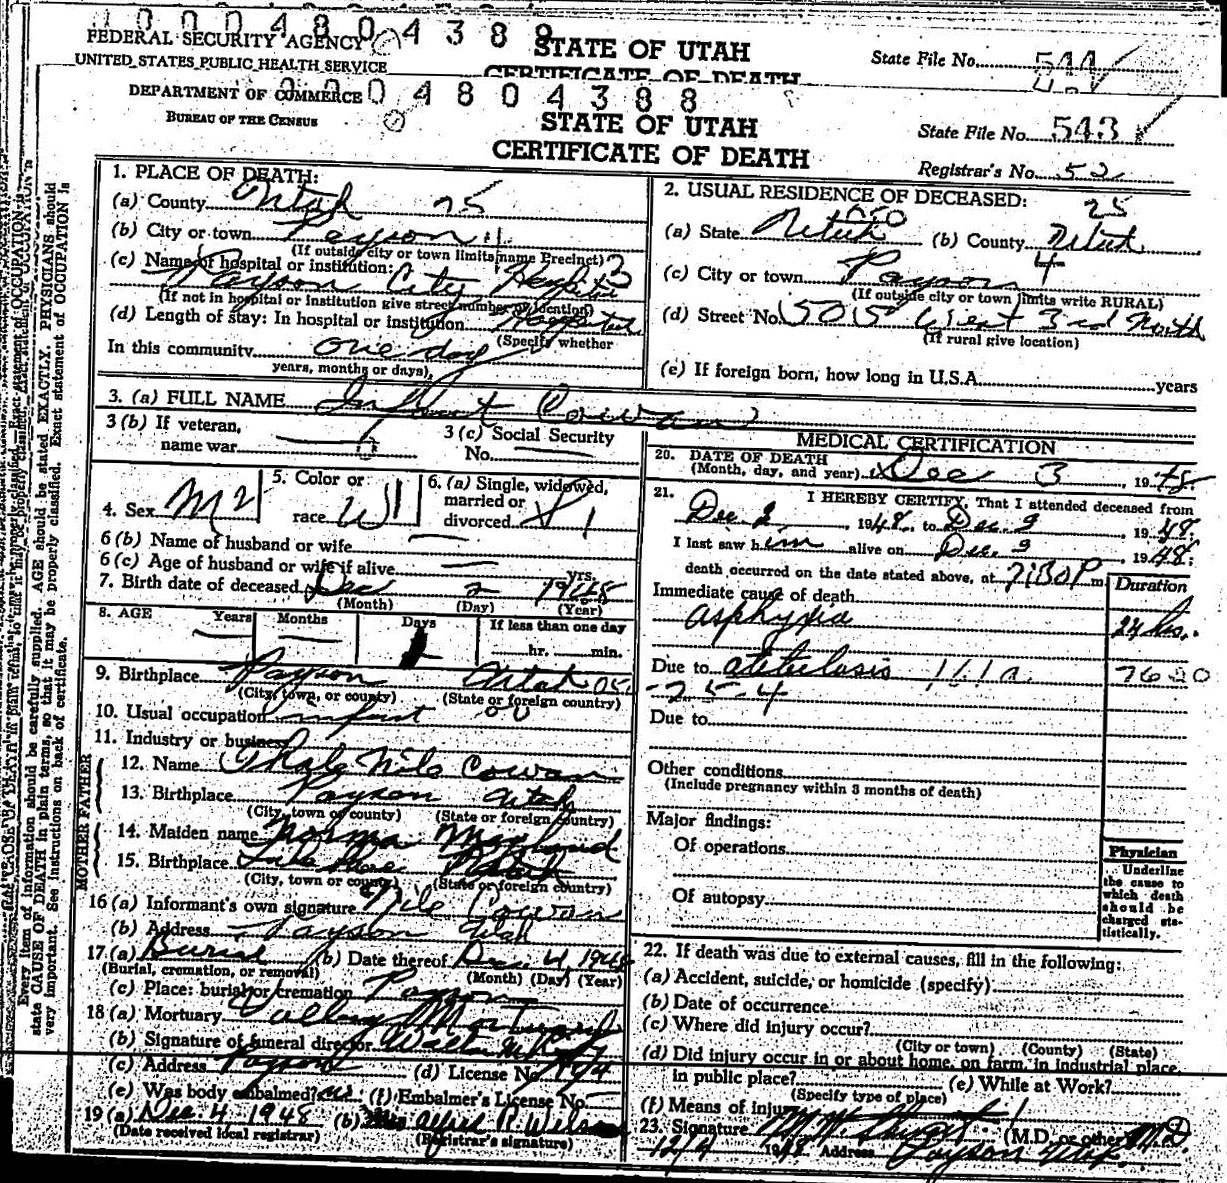 00004804389
FEDERAL SECURITY AGENCY
UNITED STATES PUBLIC HEALTH SERVICE
STATE OF UTAH
CERTIFICATE OF DEATH
State File No. 544
0004804388
DEPARTMENT OF COMMERCE
BUREAU OF THE CENSUS
STATE OF UTAH
CERTIFICATE OF DEATH
State File No. 543
Registrar's No. 52
1. PLACE OF DEATH:
(a) County Utah 25
(b) City or town Payson
(If outside city or town limits name Precinct)
(c) Name of hospital or institution: 3
Payson City Hospital
(If not in hospital or institution give street number or location)
(d) Length of stay: In hospital or institution Hospital
(Specify whether
In this community one day
years, months or days)
2. USUAL RESIDENCE OF DECEASED:
25
(a) State Utah 050 (b) County Utah
(c) City or town Payson 4
(If outside city or town limits write RURAL)
(d) Street No. 505 West 3rd North
(If rural give location)
(e) If foreign born, how long in U.S.A. years
3. (a) FULL NAME Infant Cowan
3 (b) If veteran,
name war
3 (c) Social Security
No.
4. Sex M 2
5. Color or
race W 1
6. (a) Single, widowed,
married or
divorced S 1
6 (b) Name of husband or wife
6 (c) Age of husband or wife if alive yrs.
7. Birth date of deceased Dec 2 1948
(Month) (Day) (Year)
8. AGE Years Months Days If less than one day
1 hr. min.
9. Birthplace Payson Utah 05
(City, town, or county) (State or foreign country)
10. Usual occupation infant
11. Industry or business
FATHER
12. Name Thale Nile Cowan
13. Birthplace Payson Utah
(City, town or county) (State or foreign country)
MOTHER
14. Maiden name Norma
15. Birthplace Utah
(City, town or county) (State or foreign country)
16 (a) Informant's own signature Nile Cowan
(b) Address Payson Utah
17 (a) Burial (b) Date thereof Dec. 4 1948
(Burial, cremation, or removal) (Month) (Day) (Year)
(c) Place: burial or cremation Payson
18 (a) Mortuary Mortuary
(b) Signature of funeral director
(c) Address Payson (d) License No.
(e) Was body embalmed? (f) Embalmer's License No.
19 (a) Dec. 4, 1948 (b) Mrs Alfred R. Wilson
(Date received local registrar) (Registrar's signature)
MEDICAL CERTIFICATION
20. DATE OF DEATH
(Month, day, and year) Dec 3, 1948
21. I HEREBY CERTIFY, That I attended deceased from
Dec 2, 1948, to Dec. 3, 1948.
I last saw him alive on Dec. 3, 1948;
death occurred on the date stated above, at 7:30 P m.
Immediate cause of death Duration
asphyxia 24 hrs.
Due to atelectasis 161a 7620
-25-4
Due to
Other conditions
(Include pregnancy within 3 months of death)
Major findings:
Of operations
Of autopsy
Physician
Underline
the cause to
which death
should be
charged sta-
tistically.
22. If death was due to external causes, fill in the following:
(a) Accident, suicide, or homicide (specify)
(b) Date of occurrence
(c) Where did injury occur?
(City or town) (County) (State)
(d) Did injury occur in or about home, on farm, in industrial place,
in public place? (e) While at Work?
(Specify type of place)
(f) Means of injury
23. Signature (M.D. or other) M.D
12/4 1948 Address Payson Utah.
Every item of information should be carefully supplied. AGE should be stated EXACTLY. PHYSICIANS should
state CAUSE OF DEATH in plain terms, so that it may be properly classified. Exact statement of OCCUPATION is
very important. See instructions on back of certificate.